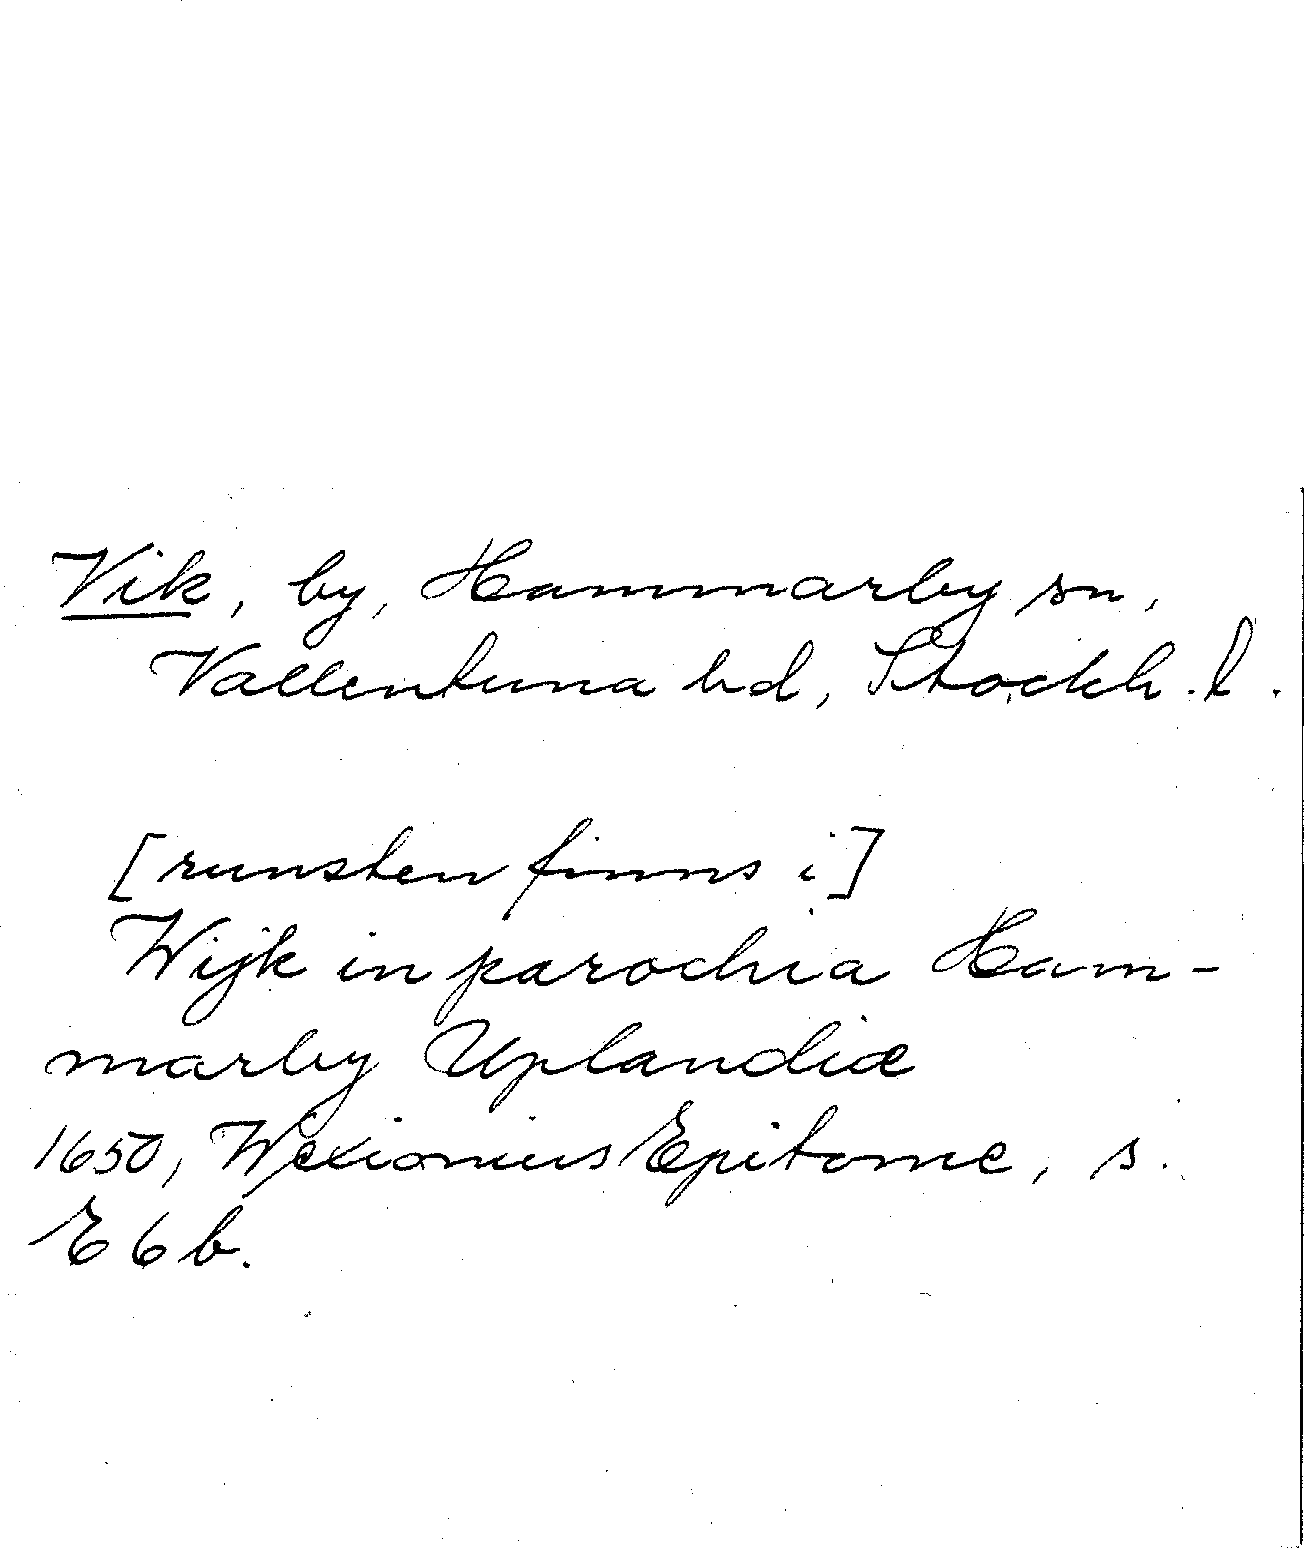 Vik, by, Hammarby sn,
Vallentuna hd, Stockh. l.
[runsten finns i]
Wijk in parochia Ham-
marby Uplandiæ
1650, Wexionius Epitome, s.
E6b.